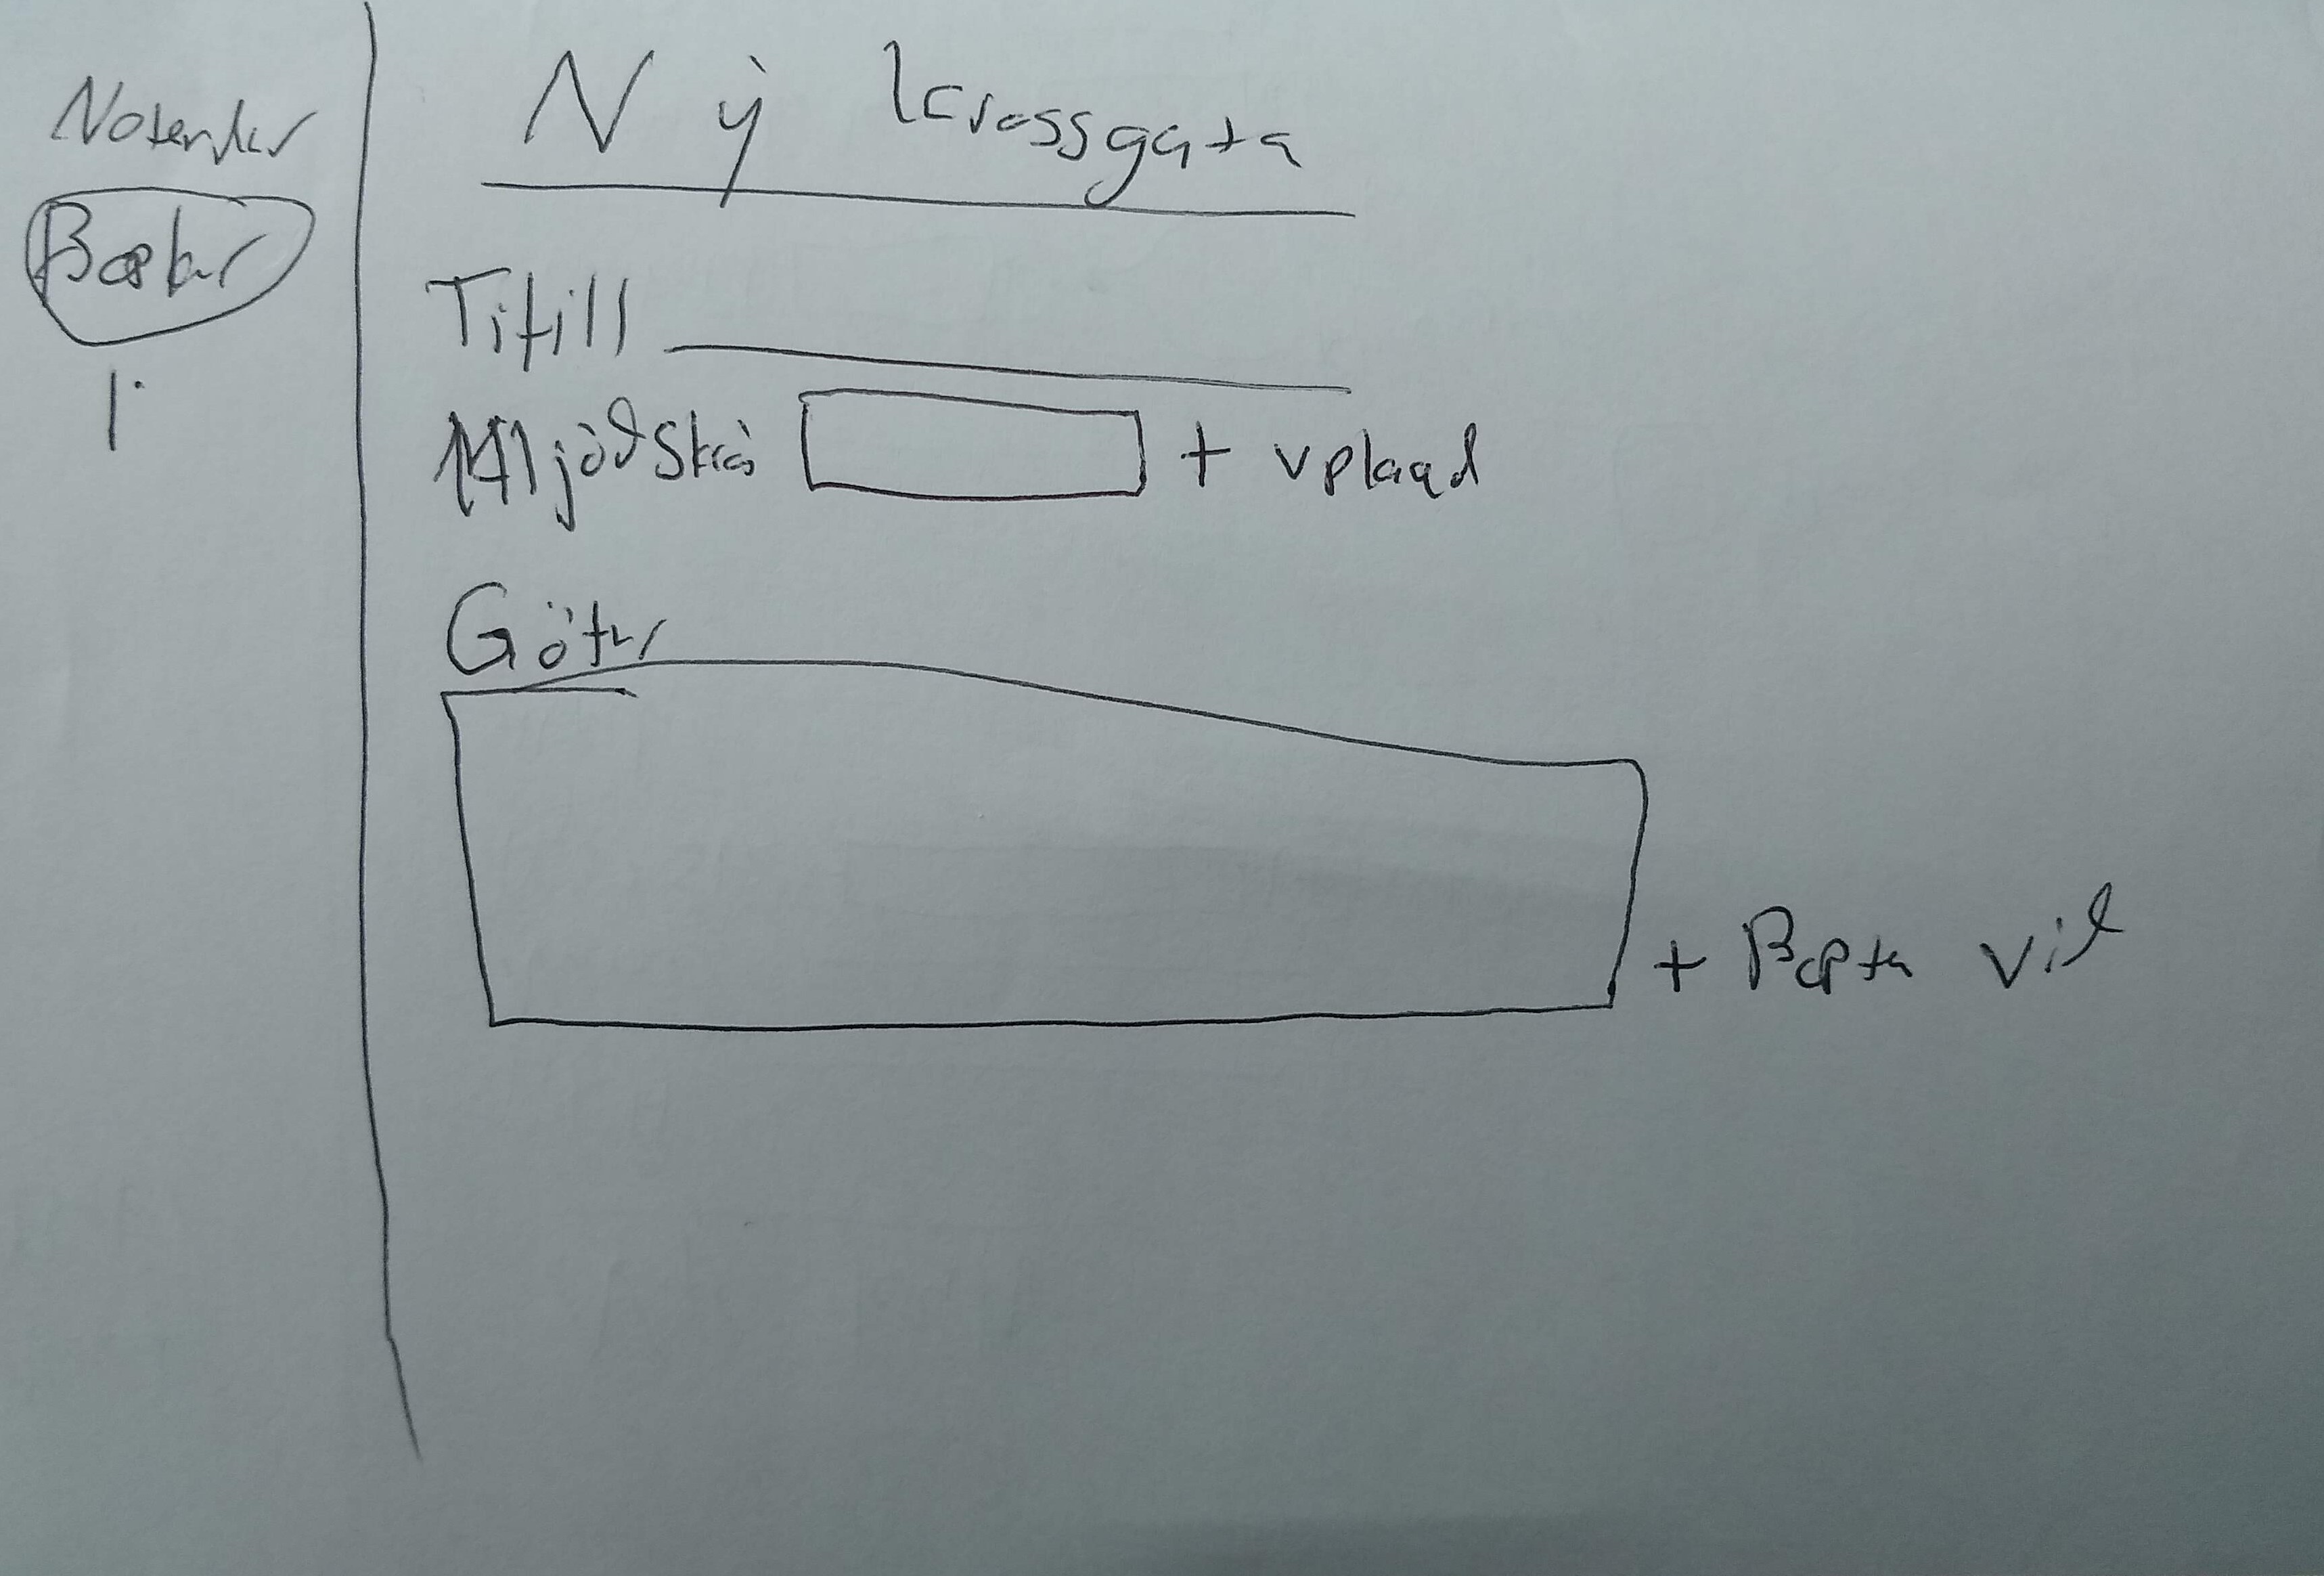 Notendur
Bækur
Ný krossgáta
Titill
Hljóðskrá + upload
Götur
+ Bæta við